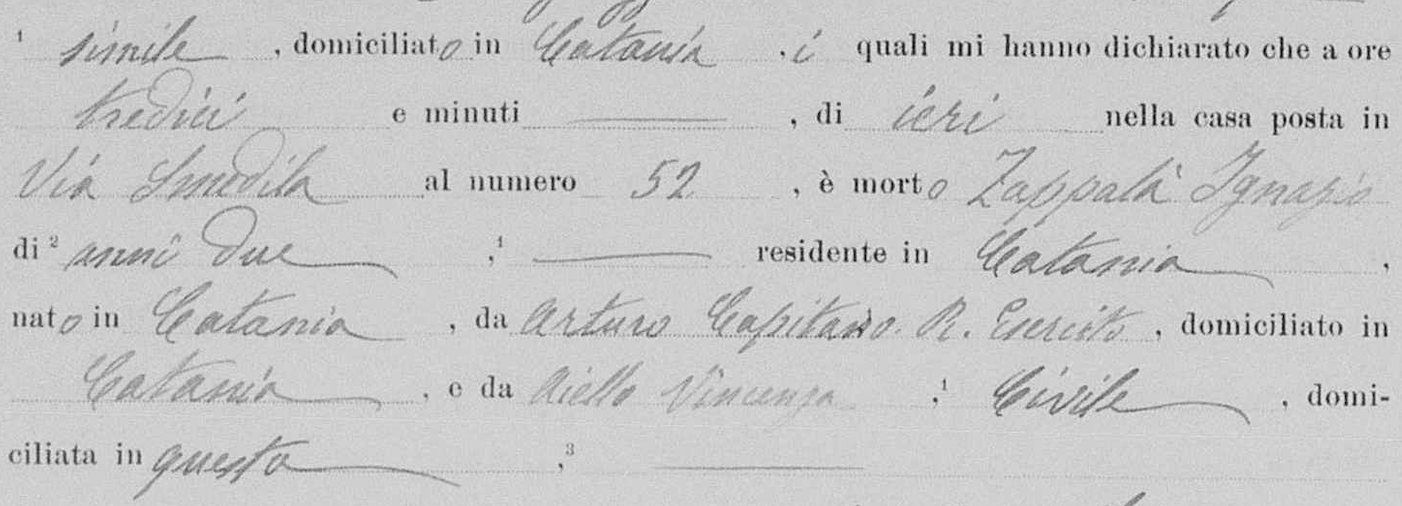 ¹ simile, domiciliato in Catania, i quali mi hanno dichiarato che a ore
tredici e minuti ——, di ieri nella casa posta in
Via al numero 52, è morto Zappalà Ignazio
di ² anni due ,¹ —— residente in Catania,
nato in Catania, da Arturo Capitano R. Esercito, domiciliato in
Catania, e da Aiello Vincenza ,¹ Civile, domi-
ciliata in questa ,³ ——